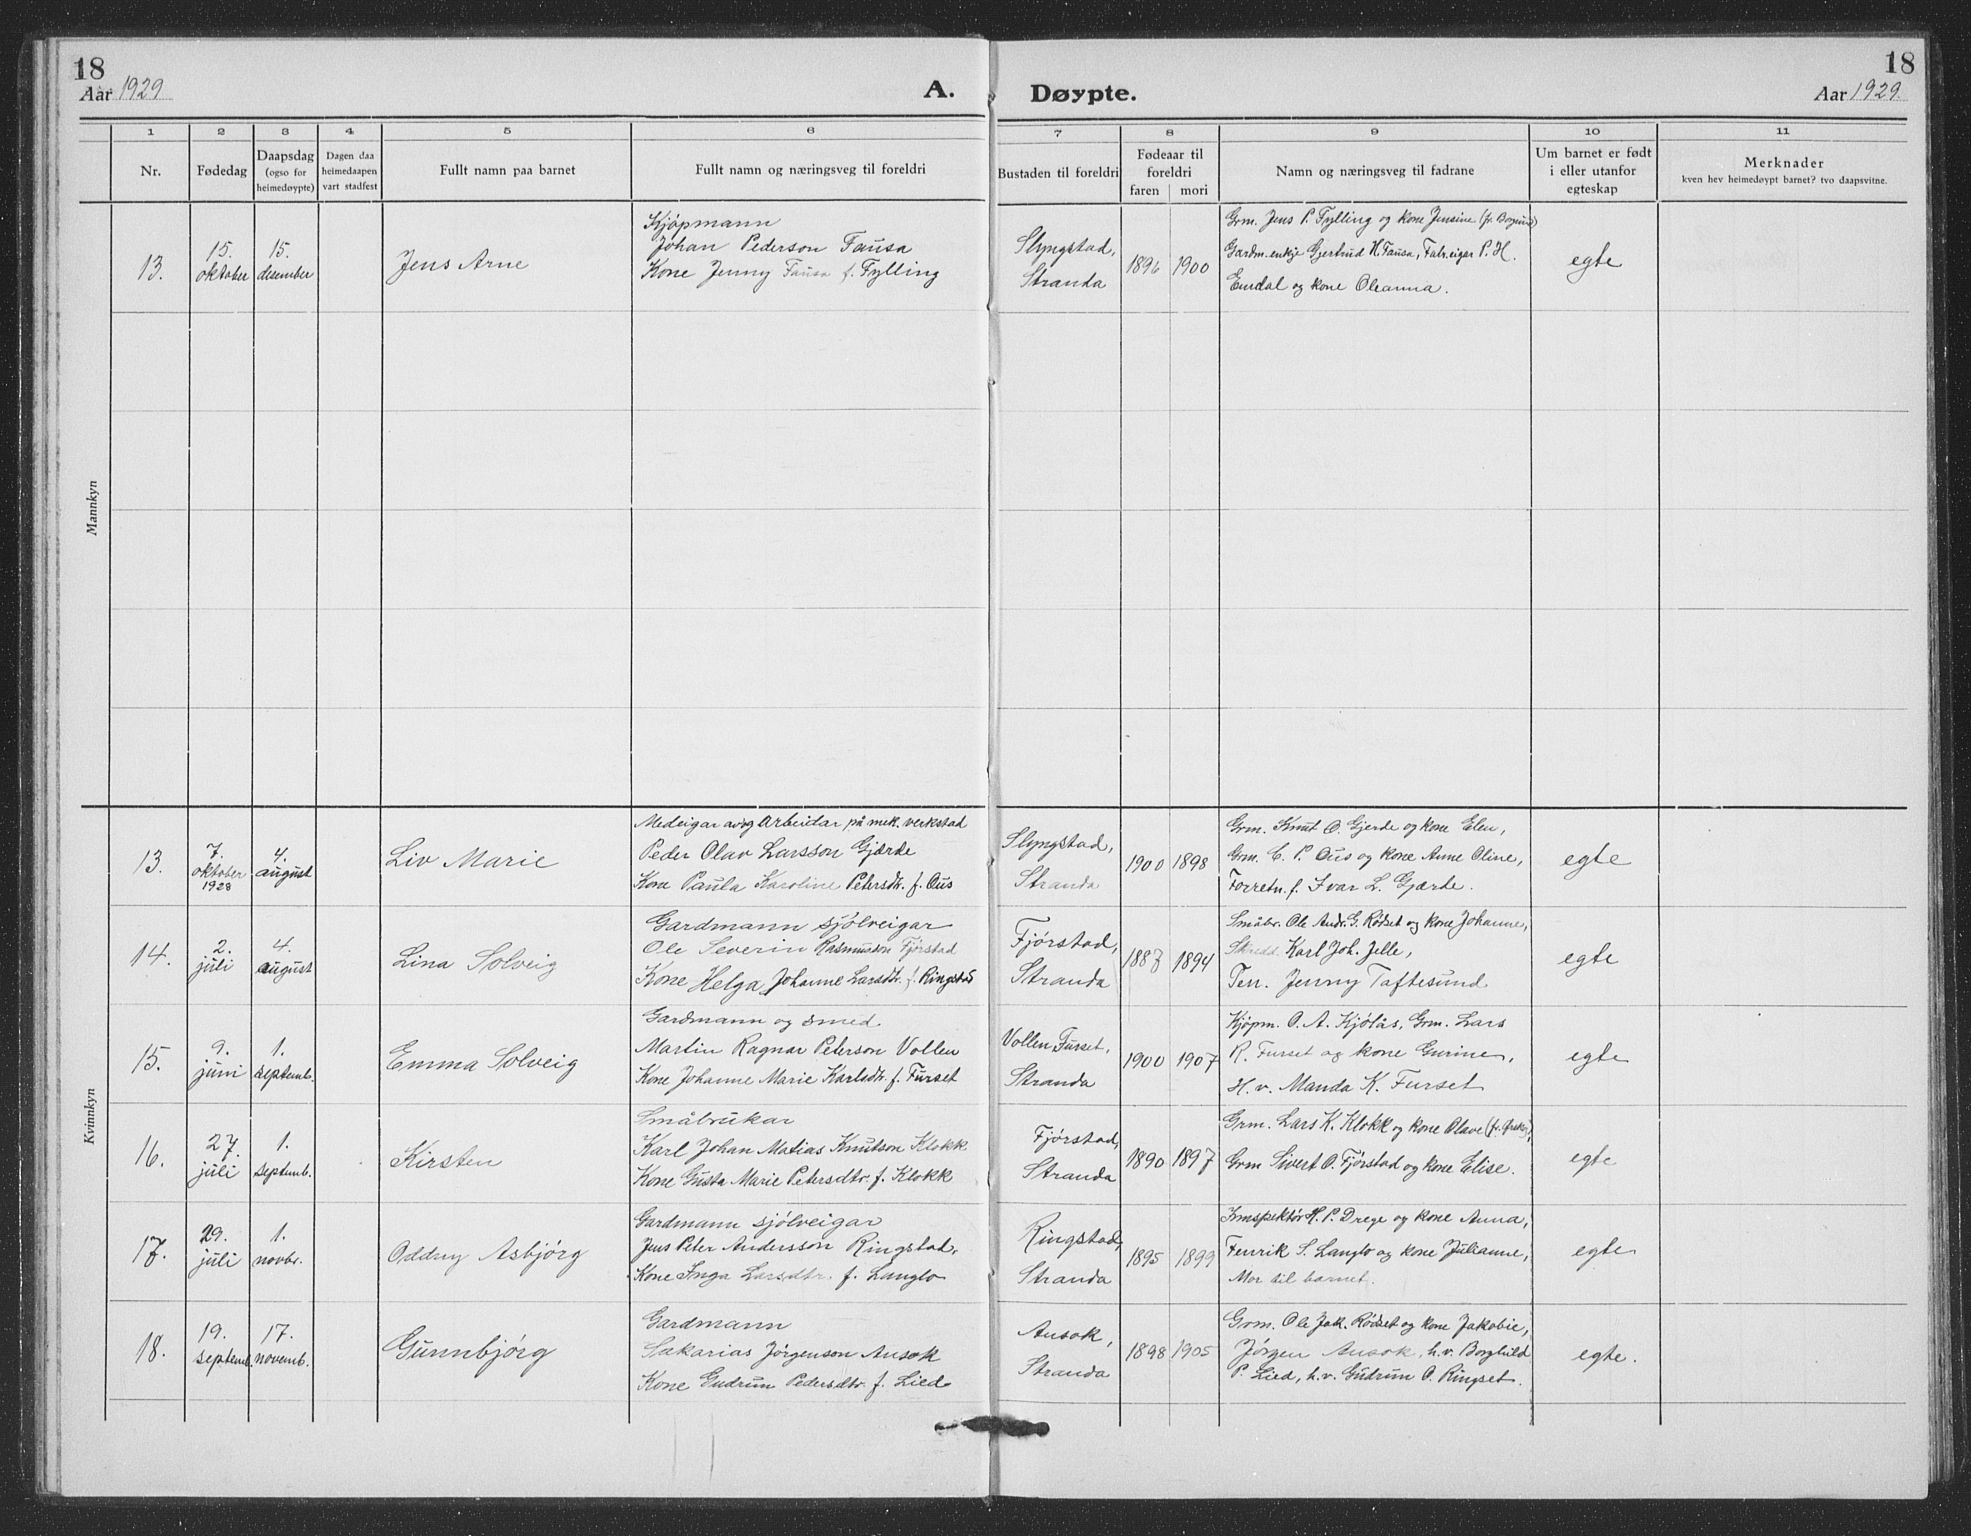 18
Aar 1929
A. Døypte.
18
Aar 1929.
1 2 3 4 5 6 7 8 9 10 11
Nr.
Fødedag
Daapsdag
(ogso for
heimedøypte)
Dagen daa
heimedaapen
vart stadfest
Fullt namn paa barnet
Fullt namn og næringsveg til foreldri
Bustaden til foreldri
Fødeaar til
foreldri
faren mori
Namn og næringsveg til fadrane
Um barnet er født
i eller utanfor
egteskap
Merknader
kven hev heimedøypt barnet? tvo daapsvitne.
Mannkyn
13.
15.
oktober
15.
desember
Jens Arne
Kjøpmann
Johan Pederson Fausa
Kone Jenny Fausa f. Fylling
Slyngstad,
Stranda
1896 1900
Grm. Jens P. Fylling og kone Jensine (fr. Borgund)
Gardm.enkje Gjertrud H. Fausa, Fabr.eigar P. H.
Emdal og kone Oleanna.
egte
Kvinnkyn
13.
7.
oktober
1928
4.
august
Liv Marie
Medeigar av og Arbeidar på mek. verkstad
Peder Olav Larsson Gjærde
Kone Paula Karoline Petersdtr. f. Ous
Slyngstad,
Stranda
1900 1898
Grm. Knut O. Gjerde og kone Elen,
Grm. C. P. Ous og kone Anne Oline,
Forretn.f. Ivar L. Gjærde.
egte
14.
2.
juli
4.
august
Lina Solveig
Gardmann sjølveigar
Ole Severin Rasmusson Fjørstad
Kone Helga Johanne Larsdtr. f. Ringstad
Fjørstad,
Stranda
1887 1894
Småbr. Ole Andr. G. Rødset og kone Johanne,
Skredd. Karl Joh. Jelle,
Ten. Jenny Taftesund
egte
15.
9.
juni
1.
septemb.
Emma Solveig
Gardmann og smed
Martin Ragnar Peterson Vollen
Kone Johanne Marie Karlsdtr. f. Furset
Vollen Furset,
Stranda
1900 1907
Kjøpm. O. A. Kjølås, Grm. Lars
R. Furset og kone Gurine,
H. v. Manda K. Furset
egte
16.
27.
juli
1.
septemb.
Kirsten
Småbrukar
Karl Johan Matias Knutson Klokk
Kone Gusta Marie Petersdtr. f. Klokk
Fjørstad,
Stranda
1890 1897
Grm. Lars K. Klokk og kone Olave
Grm Sivert O. Fjørstad og kone Elise.
egte
17.
29.
juli
1.
novbr.
Oddny Asbjørg
Gardmann sjølveigar
Jens Peter Andersson Ringstad,
Kone Inga Larsdtr. f. Langlo
Ringstad,
Stranda
1895 1899
Innspektør H. P. Drege og kone Anna,
Fenrik S. Langlo og kone Julianne,
Mor til barnet.
egte
18.
19.
septemb.
17.
novemb.
Gunnbjørg
Gardmann
Sakarias Jørgenson Ansok
Kone Gudrun Pedersdtr. f. Lied
Ansok,
Stranda
1898 1905
Grm. Ole Jak. Rødset og kone Jakobie,
Jørgen Ansok, h.v. Borghild
P. Lied, h.v. Gudrun O. Ringset.
egte.